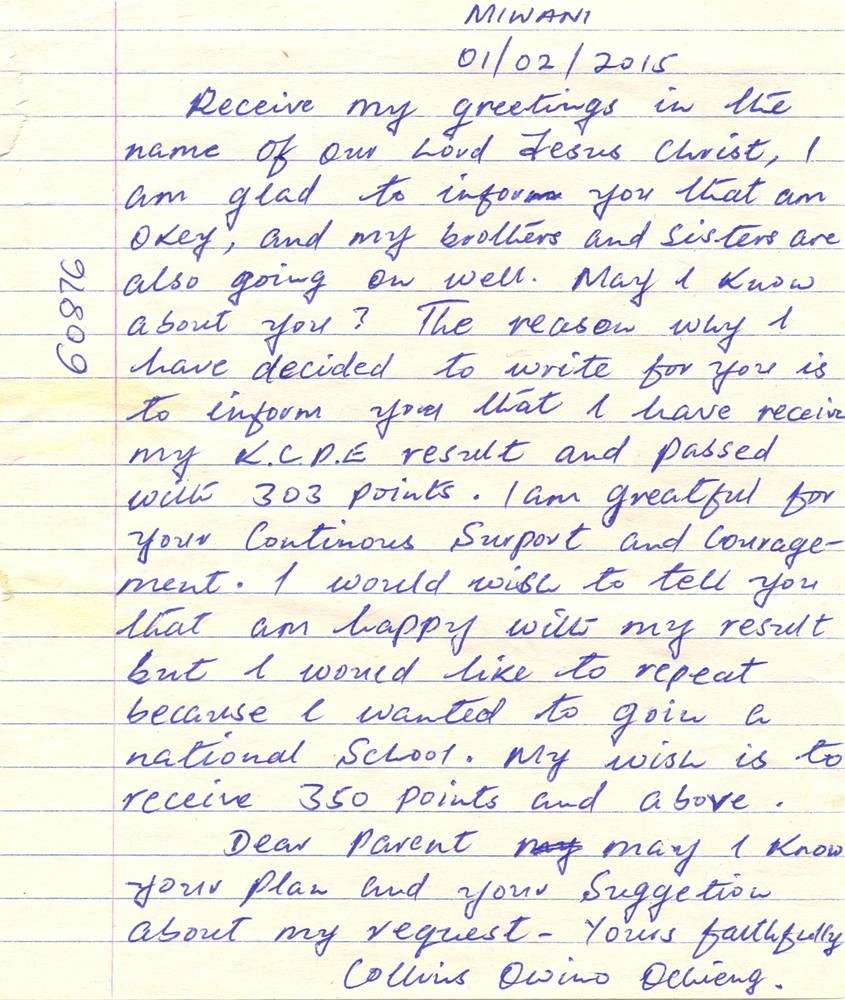 MIWANI
01/02/2015
Receive my greetings in the
name of our Lord Jesus Christ, I
am glad to inform you that am
okey, and my brothers and sisters are
also going on well. May I know
about you? The reason why I
have decided to write for you is
to inform you that I have receive
my K.C.P.E result and passed
with 303 points. I am greatful for
your Continous Surport and Courage-
ment. I would wish to tell you
that am happy with my result
but I would like to repeat
because I wanted to goin a
national School. My wish is to
receive 350 points and above.
Dear Parent my may I know
your plan and your Suggetion
about my request - Yours faithfully
Collins Owino Ochieng.
60876